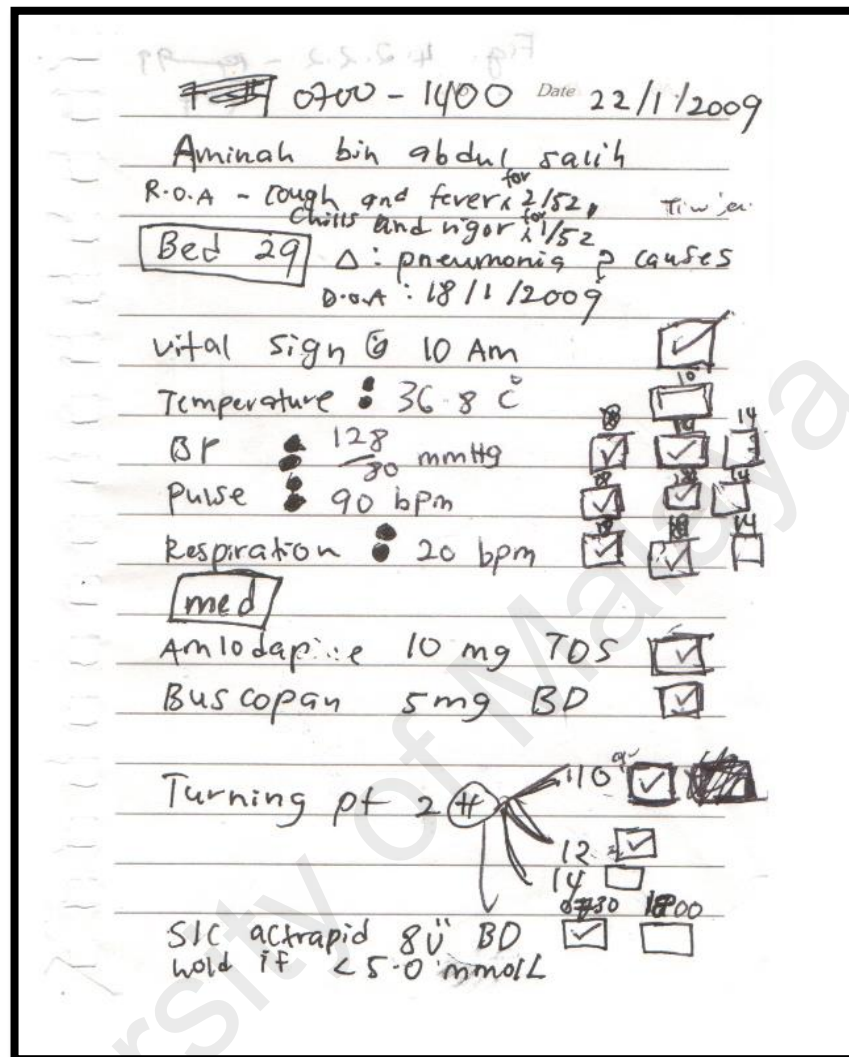 0700 - 1400 Date 22/1/2009
Aminah bin abdul salih
R.O.A - cough and fever x for 2/52,
chills and rigor x for 1/52
Bed 29 Δ: pneumonia ? causes
D.O.A : 18/1/2009
vital sign @ 10 Am
10
Temperature : 36.8 °C
BP : 128/80 mmHg 14
Pulse : 90 bpm 14
Respiration : 20 bpm 14
med
Amlodapine 10 mg TDS
Buscopan 5mg BD
Turning pt 2 H 10
12
14
0730 1800
S/C actrapid 8 ü BD
hold if < 5.0 mmolL
University of Malaya